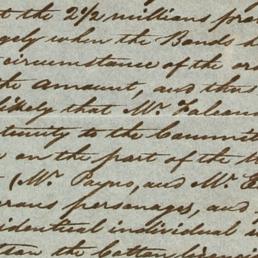 t the 2½ millions pro
gely when the Bonds d
circumstance of the or
the amount, and thus
likely that Mr.
tunity to the Committ
e on the part of the
t (Mr. Payne, and Mr. E
erous personages, and
idential individual
ttan the Cotton